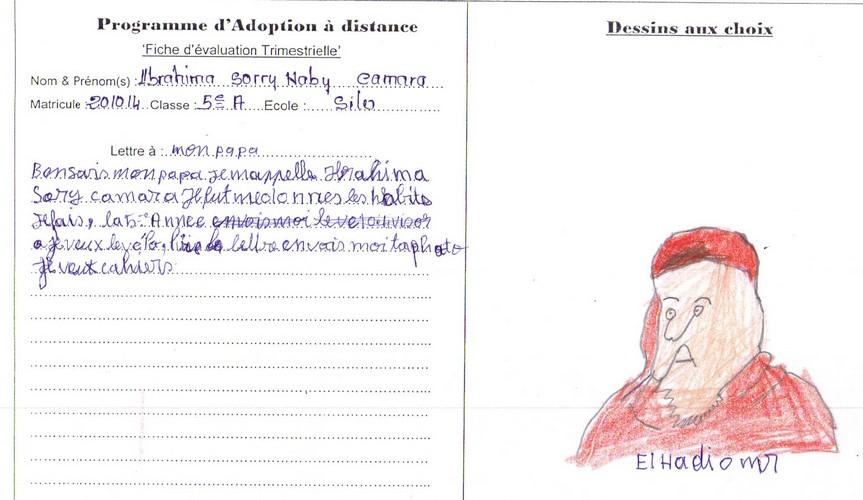 Programme d'Adoption à distance
'Fiche d'évaluation Trimestrielle'
Nom & Prénom(s) : Ibrahima Sorry Naby Camara
Matricule : 201014 Classe : 5e A Ecole : Silo
Lettre à : mon papa
Bonsoirs mon papa Je mappelle Ibrahima
Sory camara Je fut me donnes les habits
Je fais, la 5e Annee envois moi le velo
a Je veux le velo, lettre envois moi ta photo
Je veux cahiers
Dessins aux choix
El Hadi omr